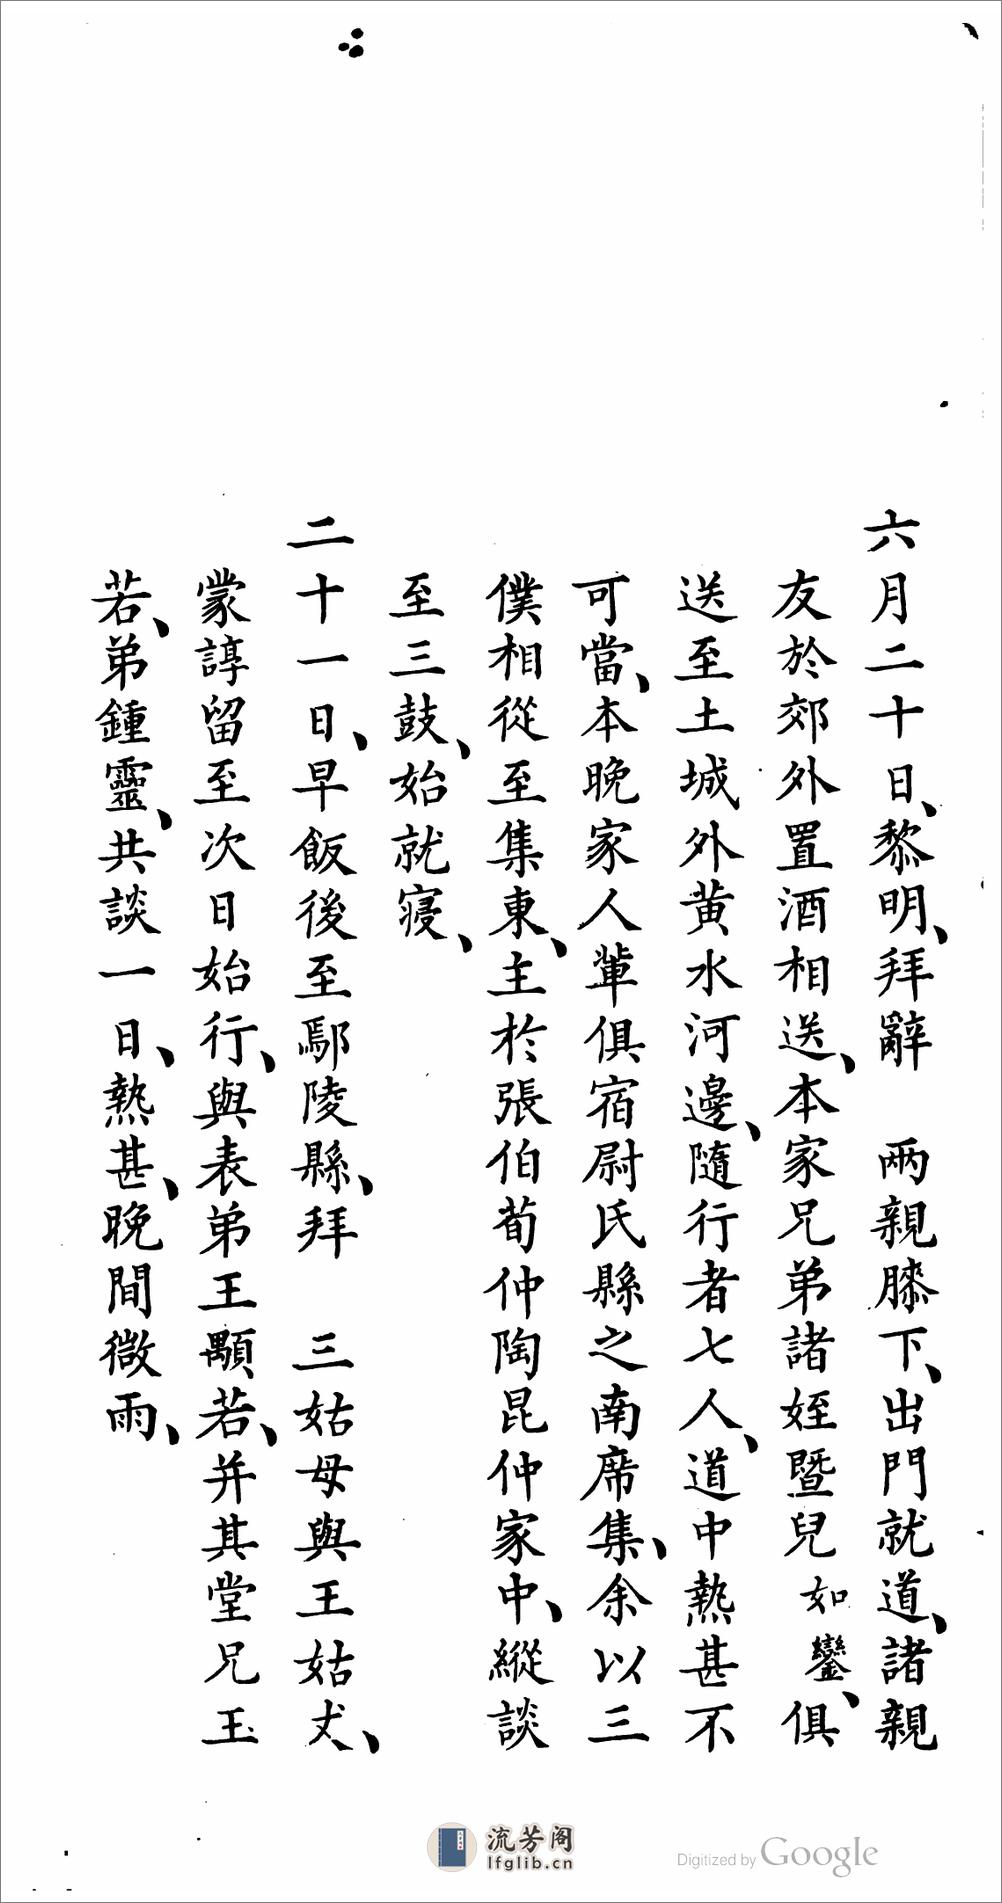 六月二十日、黎明、拜辭　兩親膝下、出門就道、諸親
友於郊外置酒相送、本家兄弟諸姪暨兒如鑾、俱
送至土城外黄水河邊、隨行者七人、道中熱甚不
可當、本晚家人輩俱宿尉氏縣之南席集、余以三
僕相從至集東、主於張伯荀仲陶昆仲家中、縱談
至三鼓、始就寢、
二十一日、早飯後至鄢陵縣、拜　三姑母與王姑丈、
蒙諄留至次日始行、與表弟王顒若、并其堂兄玉
若、弟鍾靈、共談一日、熱甚、晚間微雨、
流芳阁
lfglib.cn
Digitized by Google